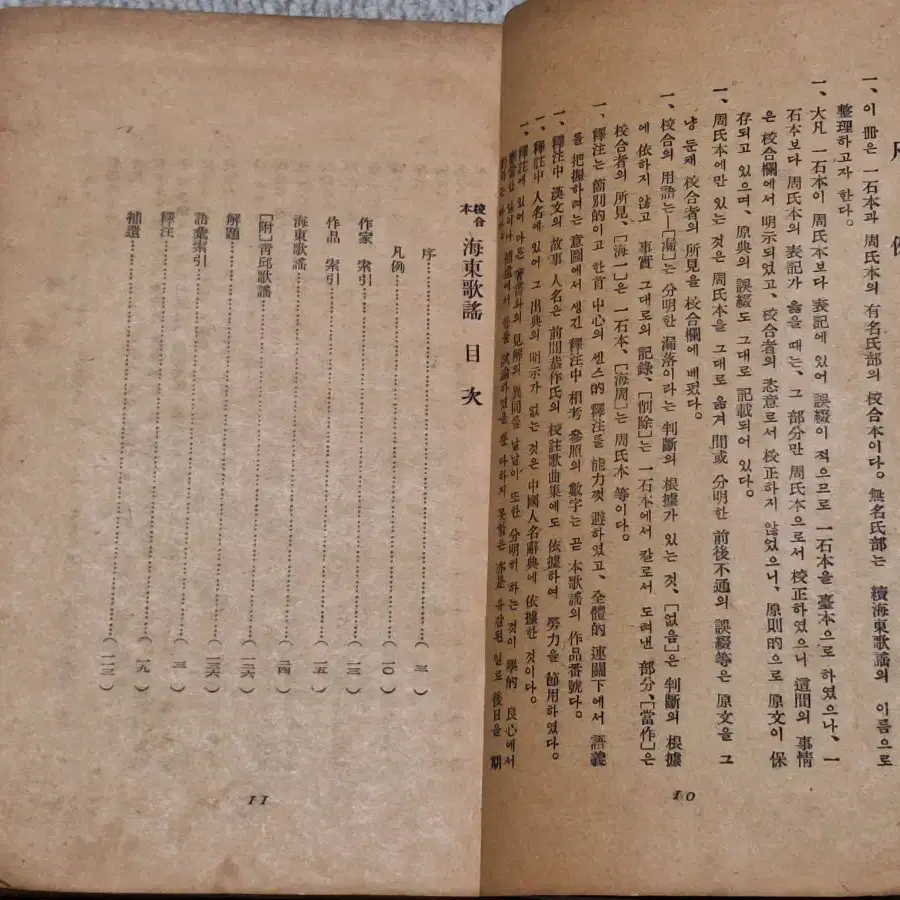 凡例
一、이 册은 一石本과 周氏本의 有名氏部의 校合本이다。無名氏部는 續海東歌謠의 이름으로
整理하고자 한다。
一、大凡 一石本이 周氏本보다 表記에 있어 誤綴이 적으므로 一石本을 臺本으로 하였으나、一
石本보다 周氏本의 表記가 옳을 때는、그 部分만 周氏本으로서 校正하였으니 這間의 事情
은 校合欄에서 明示되었고、校合者의 恣意로서 校正하지 않았으니、原則的으로 原文이 保
存되고 있으며、原典의 誤綴도 그대로 記載되어 있다。
一、周氏本에만 있는 것은 周氏本을 그대로 옮겨 間或 分明한 前後不通의 誤綴等은 原文을 그
냥 둔채 校合者의 所見을 校合欄에 베폈다。
一、校合의 用語는「漏」는 分明한 漏落이라는 判斷의 根據가 있는 것、「없음」은 判斷의 根據
에 依하지 않고 事實 그대로의 記錄、「削除」는 一石本에서 칼로서 도려낸 部分、「當作」은
校合者의 所見、「海一」은 一石本、「海周」는 周氏本 等이다。
一、釋注는 簡別的이고 한首 中心의 센스的 釋注를 能力껏 避하였고、全體的 連關下에서 語義
를 把握하려는 意圖에서 생긴 釋注中 相考 參照의 數字는 곧 本歌謠의 作品番號다。
一、釋注中 漢文의 故事 人名은 前間恭作氏의 校註歌曲集에도 依據하여 勞力을 節用하였다。
一、釋注中 人名에 있어 그 出典의 明示가 없는 것은 中國人名辭典에 依據한 것이다。
一、釋注에 있어 見解의 異同을 낱낱이 또한 分明히 하는 것이 學的 良心에서
補遺에서 한 하지 못함은 亦是 유감된 일로 後日을 期
10
校合本 海東歌謠 目次
序……(三)
凡例……(一〇)
作家 索引……(一三)
作品 索引……(一五)
海東歌謠……(二四)
[附]靑邱歌謠……(一二六)
解題
語彙索引
釋注
補遺
11